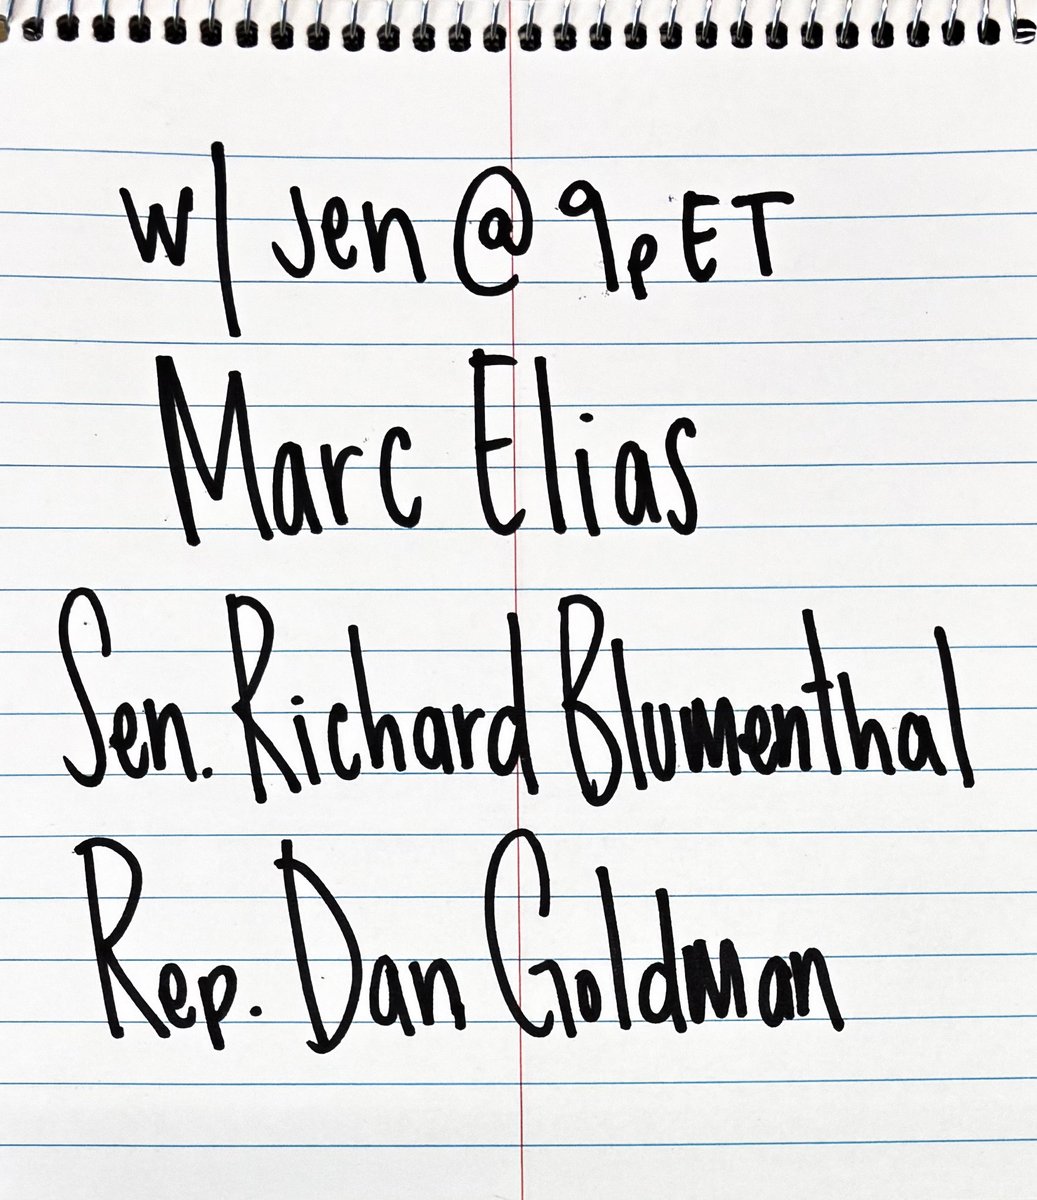 w/ Jen @ 9p ET
Marc Elias
Sen. Richard Blumenthal
Rep. Dan Goldman